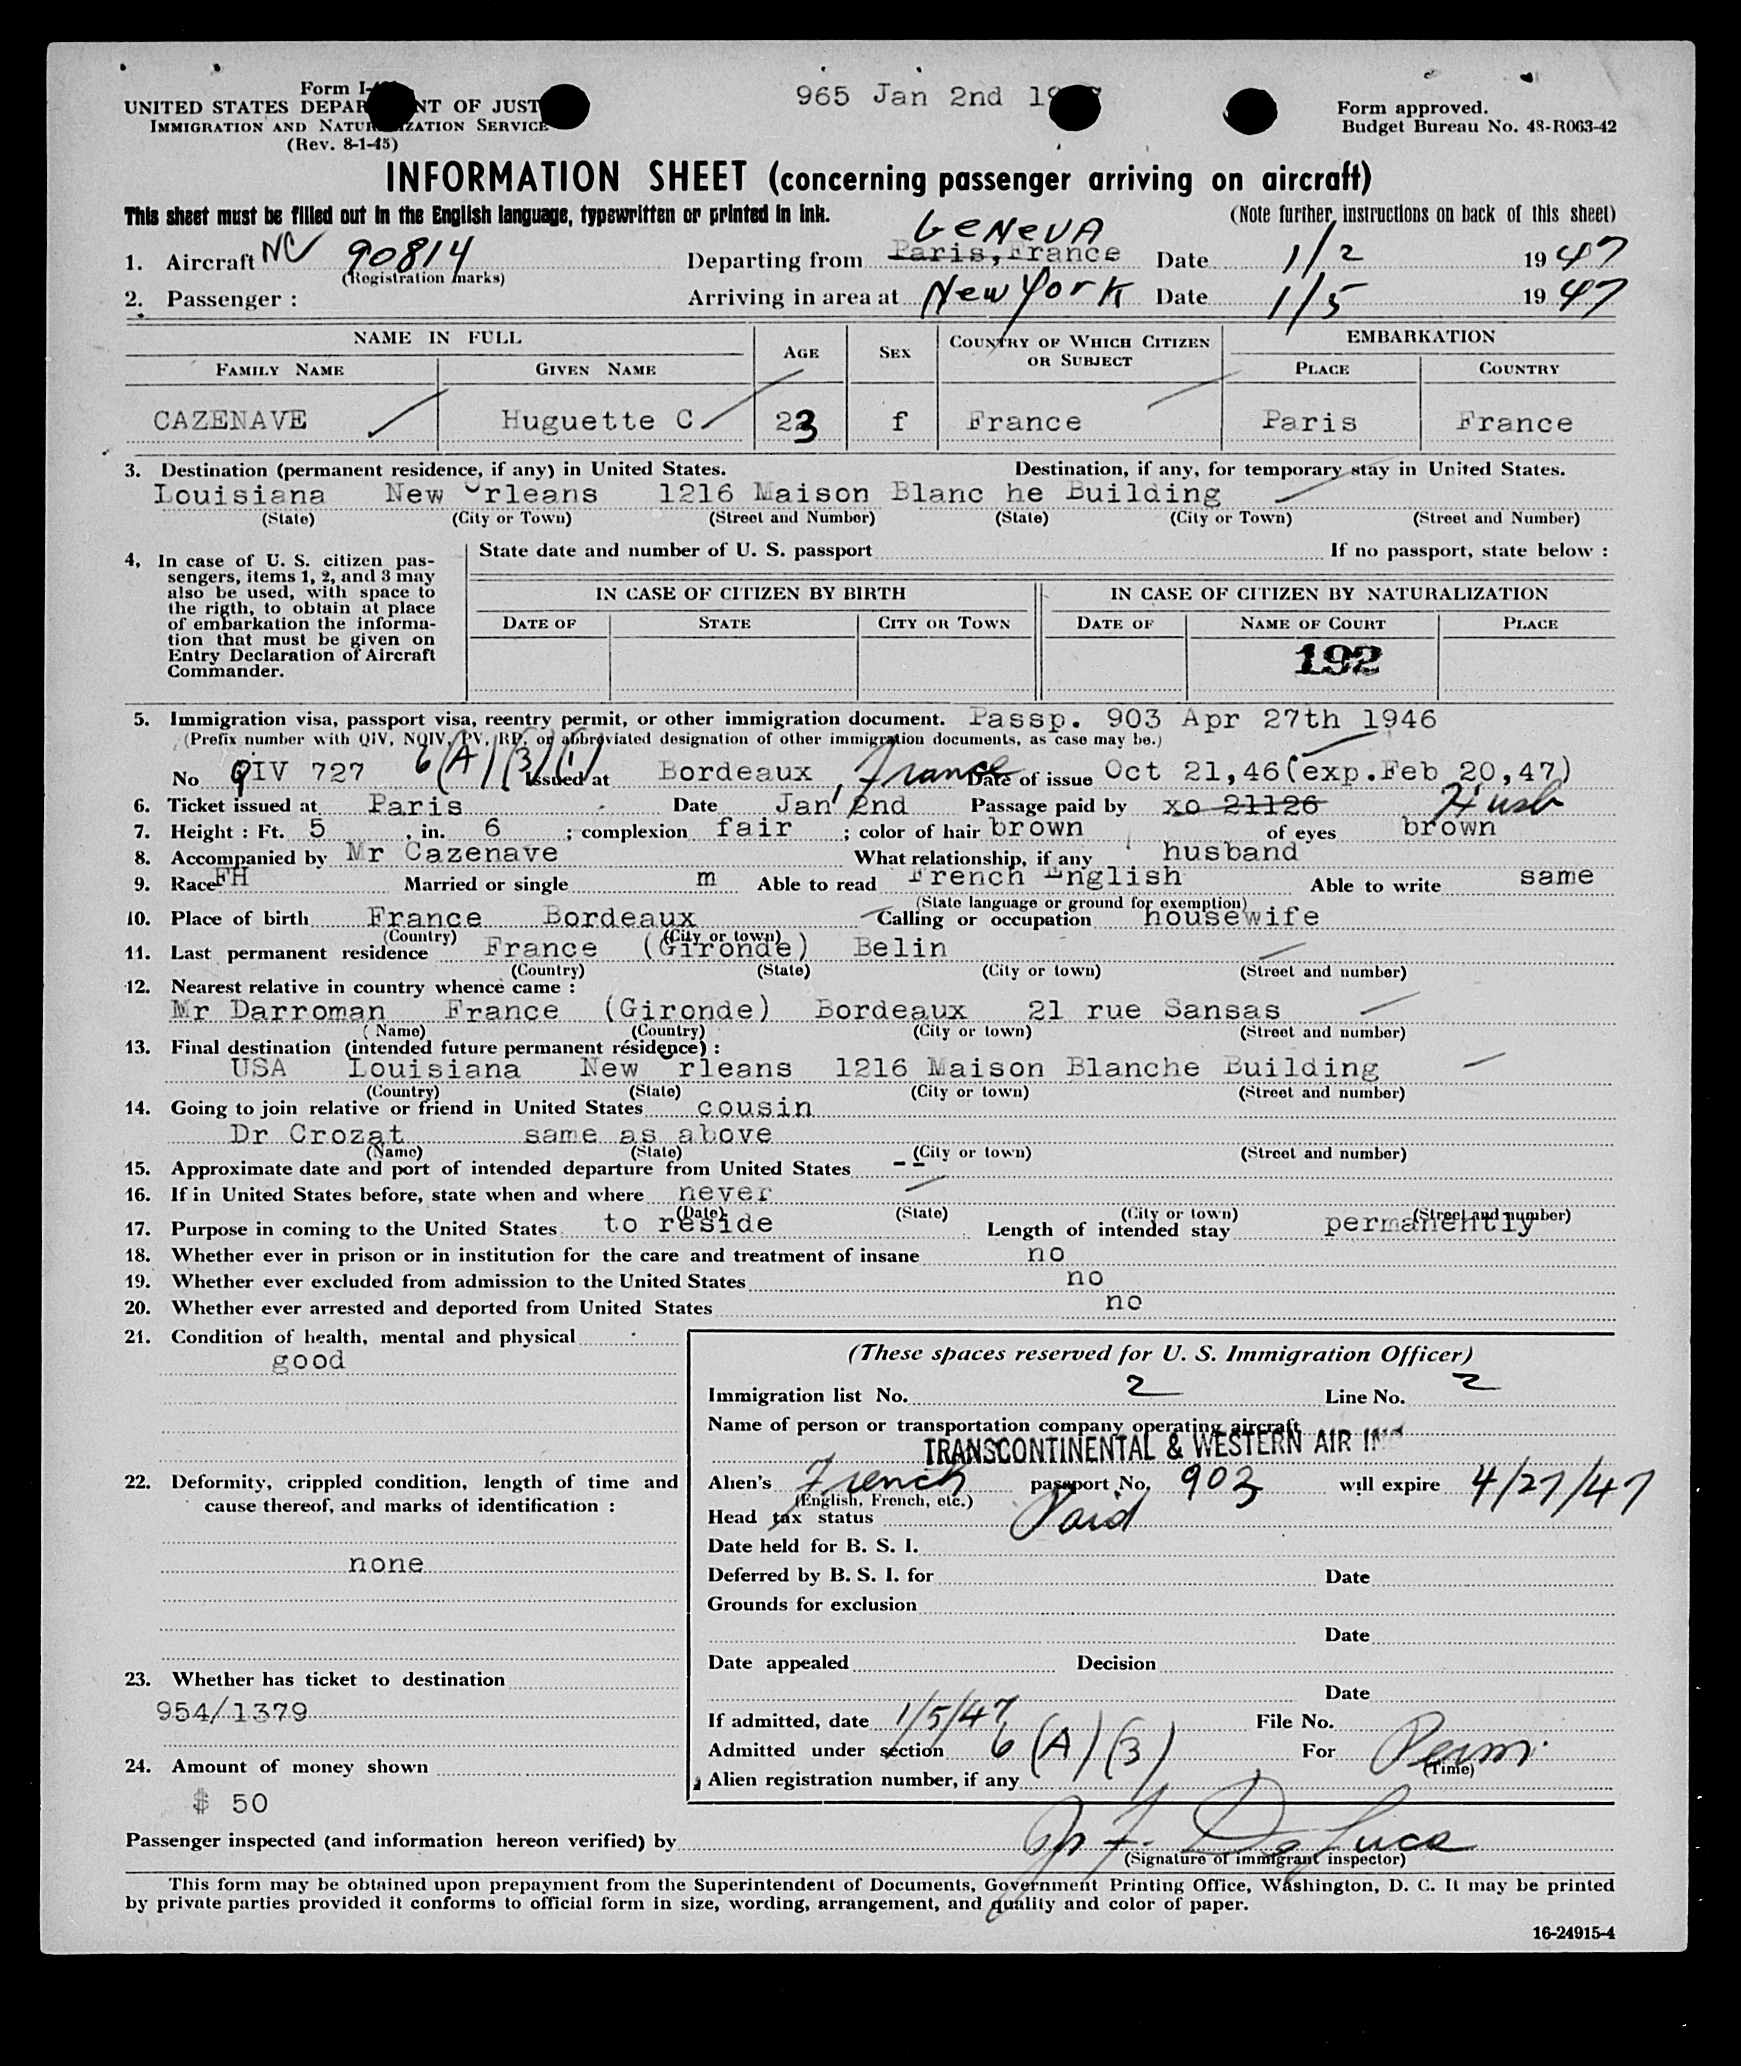 965 Jan 2nd
Form I-
UNITED STATES DEPAR NT OF JUST
IMMIGRATION AND NATUR IZATION SERVICE
(Rev. 8-1-45)
Form approved.
Budget Bureau No. 43-R063-42
INFORMATION SHEET (concerning passenger arriving on aircraft)
This sheet must be filled out in the English language, typewritten or printed in ink. (Note further instructions on back of this sheet)
GENEVA
1. Aircraft NC 90814 Departing from Paris, France Date 1/2 1947
(Registration marks)
2. Passenger : Arriving in area at New York Date 1/5 1947
NAME IN FULL AGE SEX COUNTRY OF WHICH CITIZEN OR SUBJECT EMBARKATION
FAMILY NAME GIVEN NAME PLACE COUNTRY
CAZENAVE Huguette C 23 f France Paris France
3. Destination (permanent residence, if any) in United States. Destination, if any, for temporary stay in United States.
Louisiana New Orleans 1216 Maison Blanc he Building
(State) (City or Town) (Street and Number) (State) (City or Town) (Street and Number)
4, In case of U. S. citizen pas-
sengers, items 1, 2, and 3 may
also be used, with space to
the rigth, to obtain at place
of embarkation the informa-
tion that must be given on
Entry Declaration of Aircraft
Commander.
State date and number of U. S. passport If no passport, state below :
IN CASE OF CITIZEN BY BIRTH IN CASE OF CITIZEN BY NATURALIZATION
DATE OF STATE CITY OR TOWN DATE OF NAME OF COURT PLACE
192
5. Immigration visa, passport visa, reentry permit, or other immigration document. Passp. 903 Apr 27th 1946
(Prefix number with QIV, NQIV, PV, RP, or abbreviated designation of other immigration documents, as case may be.)
No QIV 727 6(A)(3)(1) Issued at Bordeaux, France Date of issue Oct 21,46(exp.Feb 20,47)
6. Ticket issued at Paris Date Jan 2nd Passage paid by xo 21126 Husb
7. Height : Ft. 5 , in. 6 ; complexion fair ; color of hair brown of eyes brown
8. Accompanied by Mr Cazenave What relationship, if any husband
9. Race FH Married or single m Able to read French English Able to write same
(State language or ground for exemption)
10. Place of birth France Bordeaux Calling or occupation housewife
(Country) (City or town)
11. Last permanent residence France (Gironde) Belin
(Country) (State) (City or town) (Street and number)
12. Nearest relative in country whence came :
Mr Darroman France (Gironde) Bordeaux 21 rue Sansas
(Name) (Country) (City or town) (Street and number)
13. Final destination (intended future permanent résidence) :
USA Louisiana New Orleans 1216 Maison Blanche Building
(Country) (State) (City or town) (Street and number)
14. Going to join relative or friend in United States cousin
Dr Crozat same as above
(Name) (State) (City or town) (Street and number)
15. Approximate date and port of intended departure from United States --
16. If in United States before, state when and where never
(Date) (State) (City or town) (Street and number)
17. Purpose in coming to the United States to reside Length of intended stay permanently
18. Whether ever in prison or in institution for the care and treatment of insane no
19. Whether ever excluded from admission to the United States no
20. Whether ever arrested and deported from United States no
21. Condition of health, mental and physical
good
22. Deformity, crippled condition, length of time and
cause thereof, and marks of identification :
none
23. Whether has ticket to destination
954/1379
24. Amount of money shown
$ 50
(These spaces reserved for U. S. Immigration Officer)
Immigration list No. 2 Line No. 2
Name of person or transportation company operating aircraft
TRANSCONTINENTAL & WESTERN AIR INC
Alien's French passport No. 903 will expire 4/27/47
(English, French, etc.)
Head tax status Paid
Date held for B. S. I.
Deferred by B. S. I. for Date
Grounds for exclusion
Date
Date appealed Decision
Date
If admitted, date 1/5/47 File No.
Admitted under section 6(A)(3) For Perm.
(Time)
Alien registration number, if any
Passenger inspected (and information hereon verified) by
(Signature of immigrant inspector)
This form may be obtained upon prepayment from the Superintendent of Documents, Government Printing Office, Washington, D. C. It may be printed
by private parties provided it conforms to official form in size, wording, arrangement, and quality and color of paper.
16-24915-4